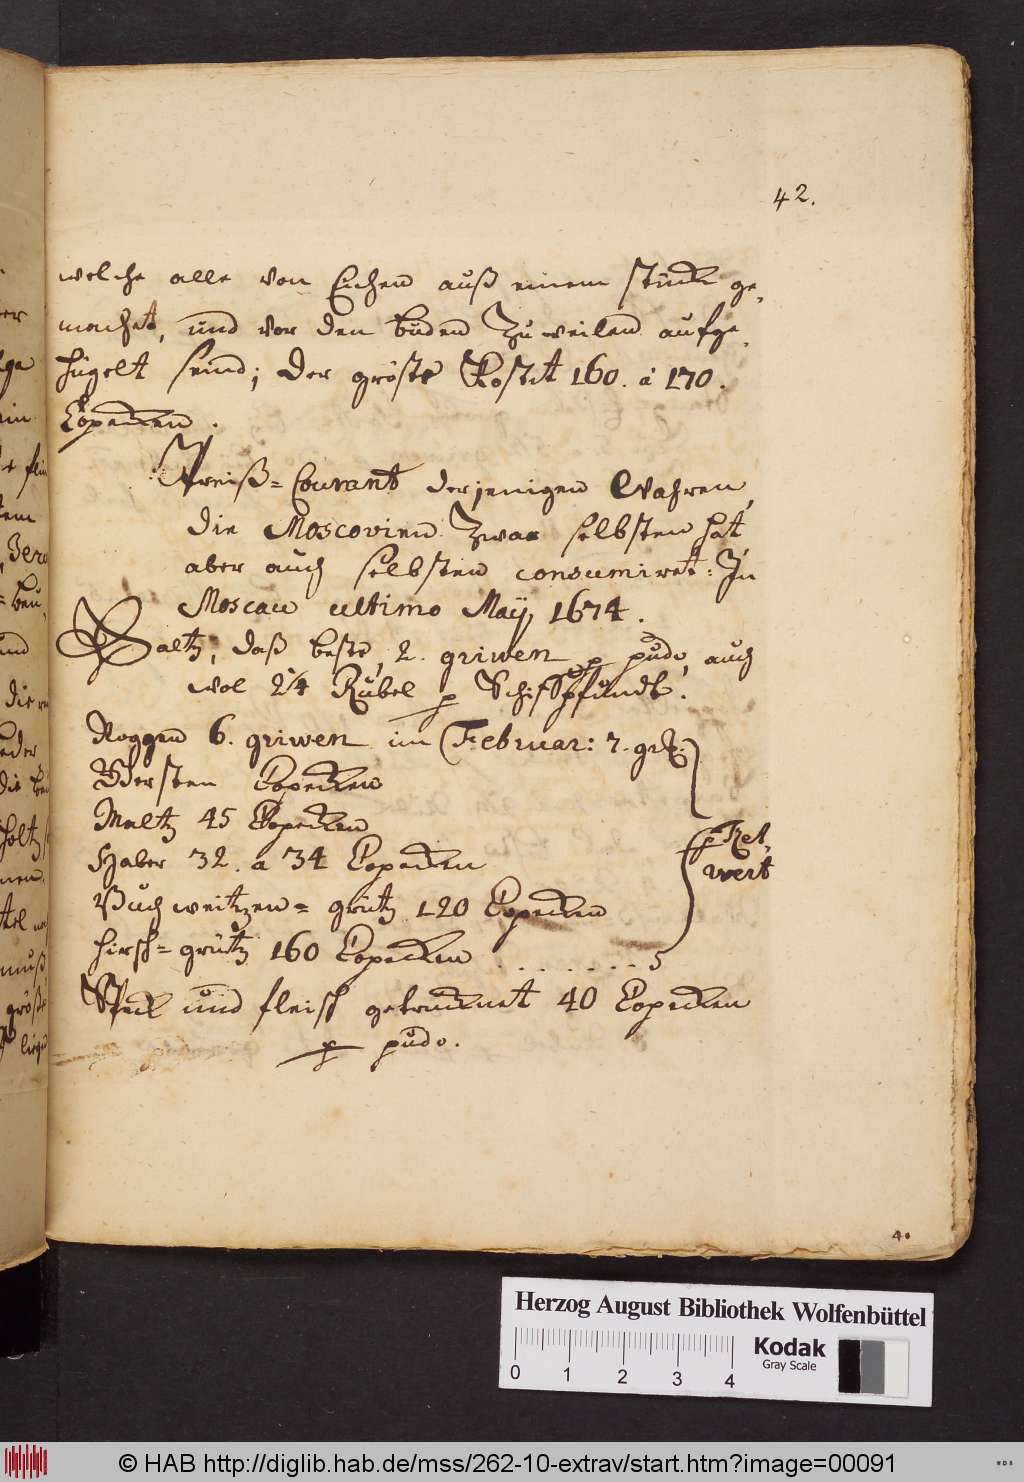 42.
welche alle von Eichen auß einem stück ge,
machet, und vor den buden Zu weilen aufge,
hügelt seind; der gröste Kostet 160. à 170.
Copecken.
Preiß=Courant derjenigen Wahren,
die Moscovien Zwar selbsten hat
aber auch selbsten consumiret: In
Moscau ultimo Maÿ 1674.
Saltz, daß beste, 2. griwen p pudo, auch
wol 2¼ Rubel p Schiffpfundt.
Roggen 6. griwen im Februar: 7. gr:
Gersten Copecken
Maltz 45 Copecken
Haber 32. a 34 Copecken
Buchweitzen=grütz 120 Copecken
hirsch=grütz 160 Copecken
p Zet,
wert
Speck und fleisch getrucknet 40 Copecken
p pudo.
Herzog August Bibliothek Wolfenbüttel
Kodak
Gray Scale
0 1 2 3 4
© HAB http://diglib.hab.de/mss/262-10-extrav/start.htm?image=00091